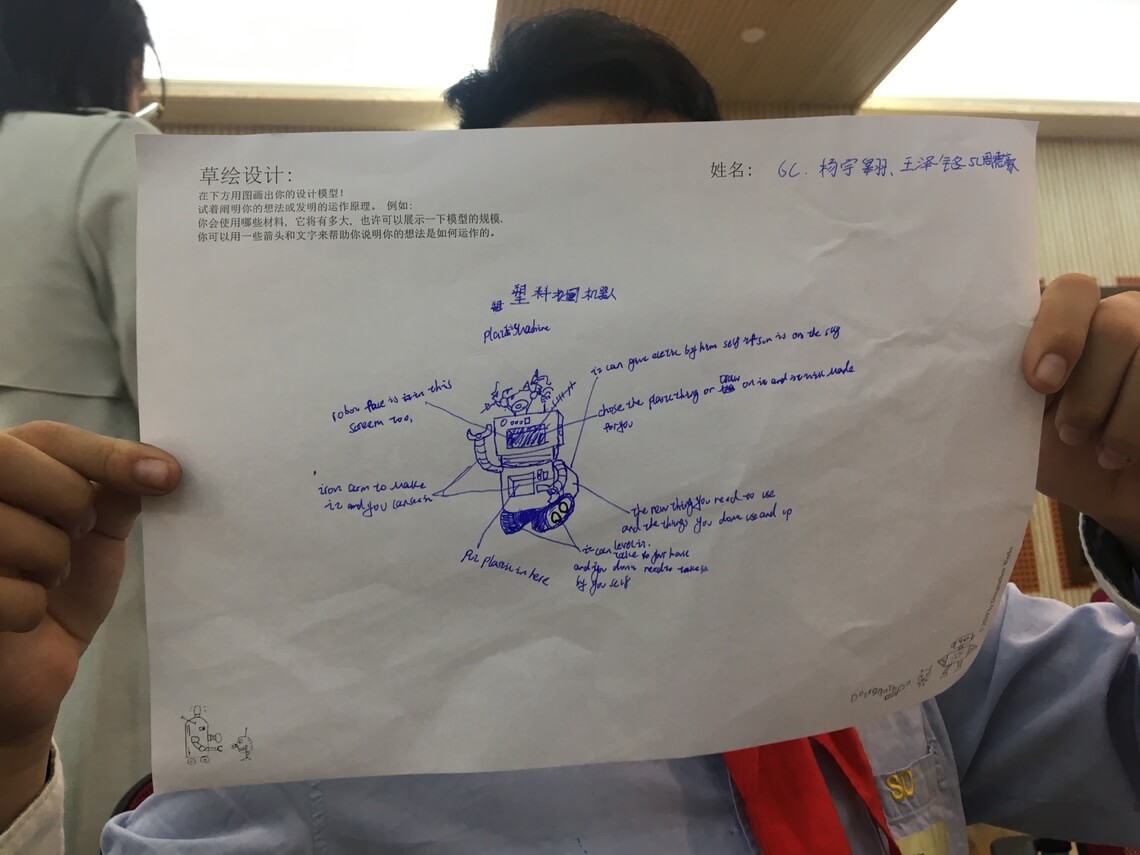 草绘设计:
姓名: 6C. 杨宇翱、王泽
在下方用图画出你的设计模型!
试着阐明你的想法或发明的运作原理。 例如:
你会使用哪些材料, 它将有多大, 也许可以展示一下模型的规模,
你可以用一些箭头和文字来帮助你说明你的想法是如何运作的。
塑料 机器人
it can give by him self if sun is on the sky
robot face is in this
screen too,
chose the plastic thing or draw on it and it will made
for you
iron arm to make
it and you can see it
the new thing you need to use
and the things you don't use end up
put plastic in here
it can
take to your house
and you don't need to take it
by you self
SU